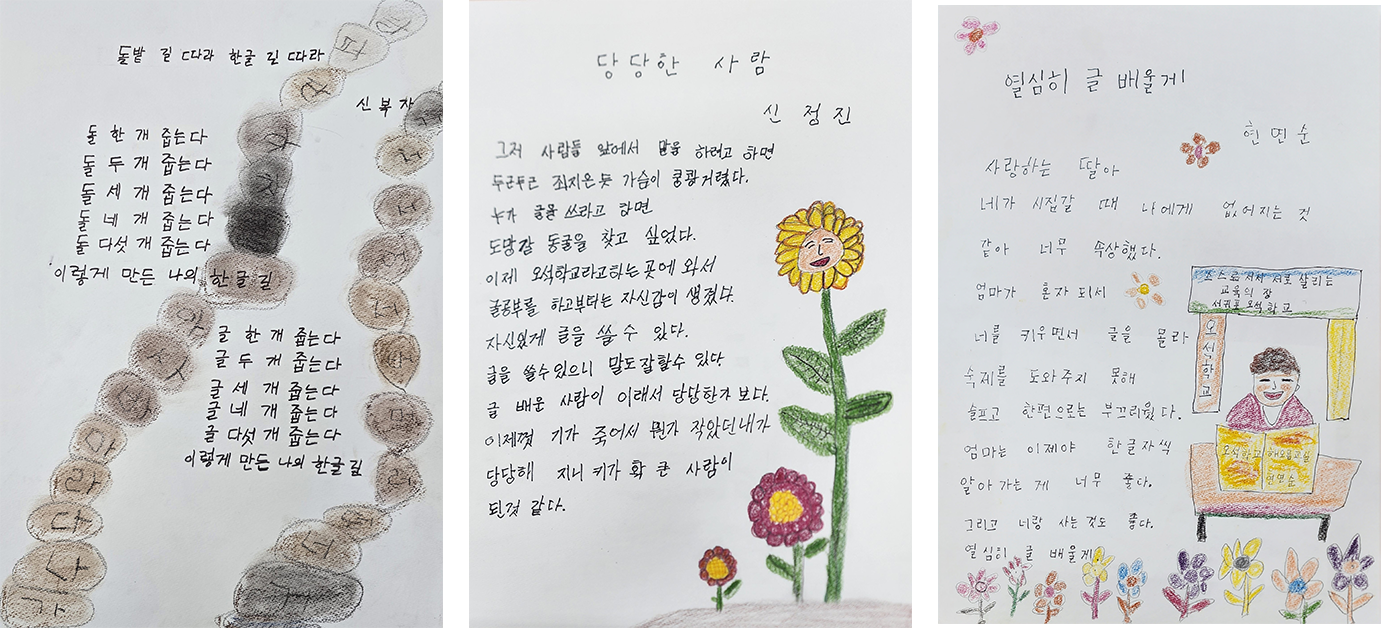 돌밭 길 따라 한글 길 따라
신복자
돌 한 개 줍는다
돌 두 개 줍는다
돌 세 개 줍는다
돌 네 개 줍는다
돌 다섯 개 줍는다
이렇게 만든 나의 한글 길
글 한 개 줍는다
글 두 개 줍는다
글 세 개 줍는다
글 네 개 줍는다
글 다섯 개 줍는다
이렇게 만든 나의 한글 길
당당한 사람
신정진
그저 사람들 앞에서 말을 하려고 하면
두근두근 죄지은듯 가슴이 쿵쾅거렸다.
누가 글을 쓰라고 하면
도망갈 동굴을 찾고 싶었다.
이제 오석학교라고하는 곳에 와서
글공부를 하고부터는 자신감이 생겼다.
자신있게 글을 쓸 수 있다.
글을 쓸수있으니 말도 잘할수 있다
글 배운 사람이 이래서 당당한가 보다.
이제껏 기가 죽어서 뭔가 작았던 내가
당당해 지니 키가 확 큰 사람이
된것 같다.
열심히 글 배울게
현연순
사랑하는 딸아
네가 시집갈 때 나에게 없어지는 것
같아 너무 속상했다.
엄마가 혼자 되서
너를 키우면서 글을 몰라
숙제를 도와주지 못해
슬프고 한편으로는 부끄리웠다.
엄마는 이제야 한글자씩
알아 가는 게 너무 좋다.
그리고 너랑 사는것도 좋다.
열심히 글 배울게
스스로 서서 서로 살리는
교육의 장
서귀포 오석학교
오석학교
오석학교
해오름교실
현연순